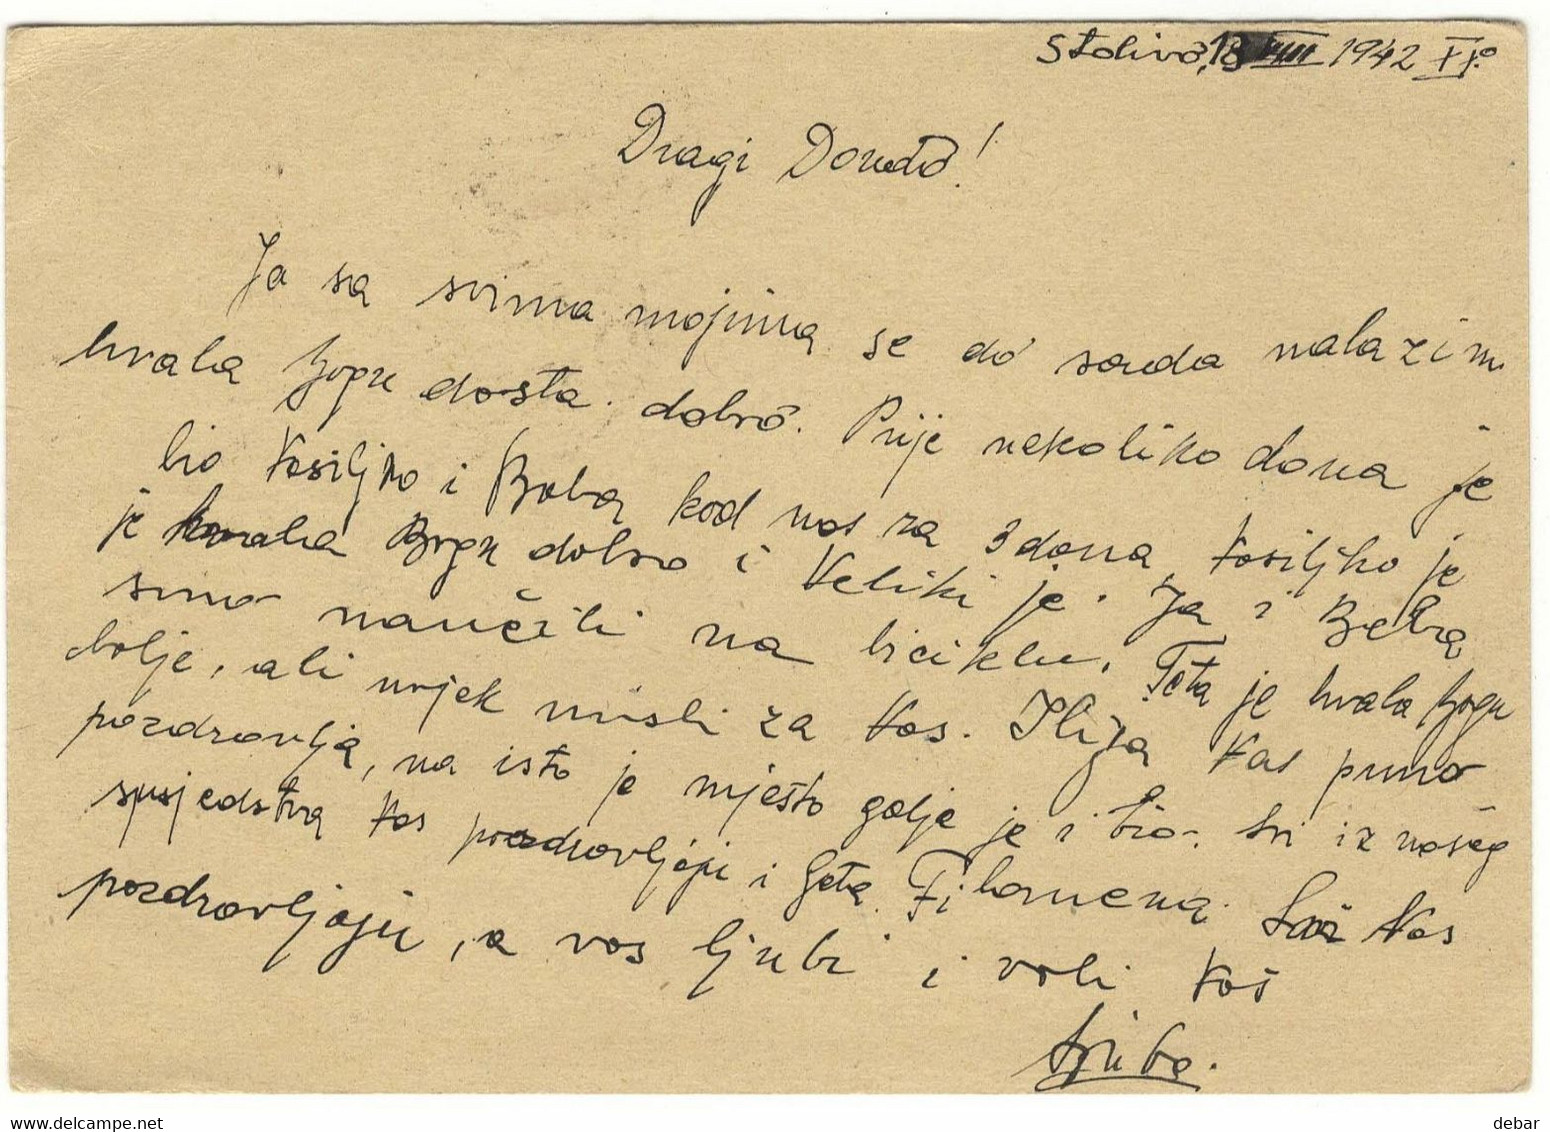 Stolivo, 18 VIII 1942 XX.o
Dragi Dundo!
Ja sa svima mojima se do sada nalazim
hvala bogu dosta dobro. Prije nekoliko dana je
bio Vasiljko i Boba kod nas za 3 dana, Vasiljko je
je hvala Bogu dobro i Veliki je. Ja i Beba
smo naučili na biciklu. Teta je hvala bogu
bolje, ali uvjek misli za Vas. Ilija Vas puno
pozdravlja, na isto je mjesto gdje je i bio. Svi iz našeg
susjedstva Vas pozdravljaju i Teta Filomena. Vas
pozdravljaju, a vas ljubi i voli Vaš
www.delcampe.net
debar